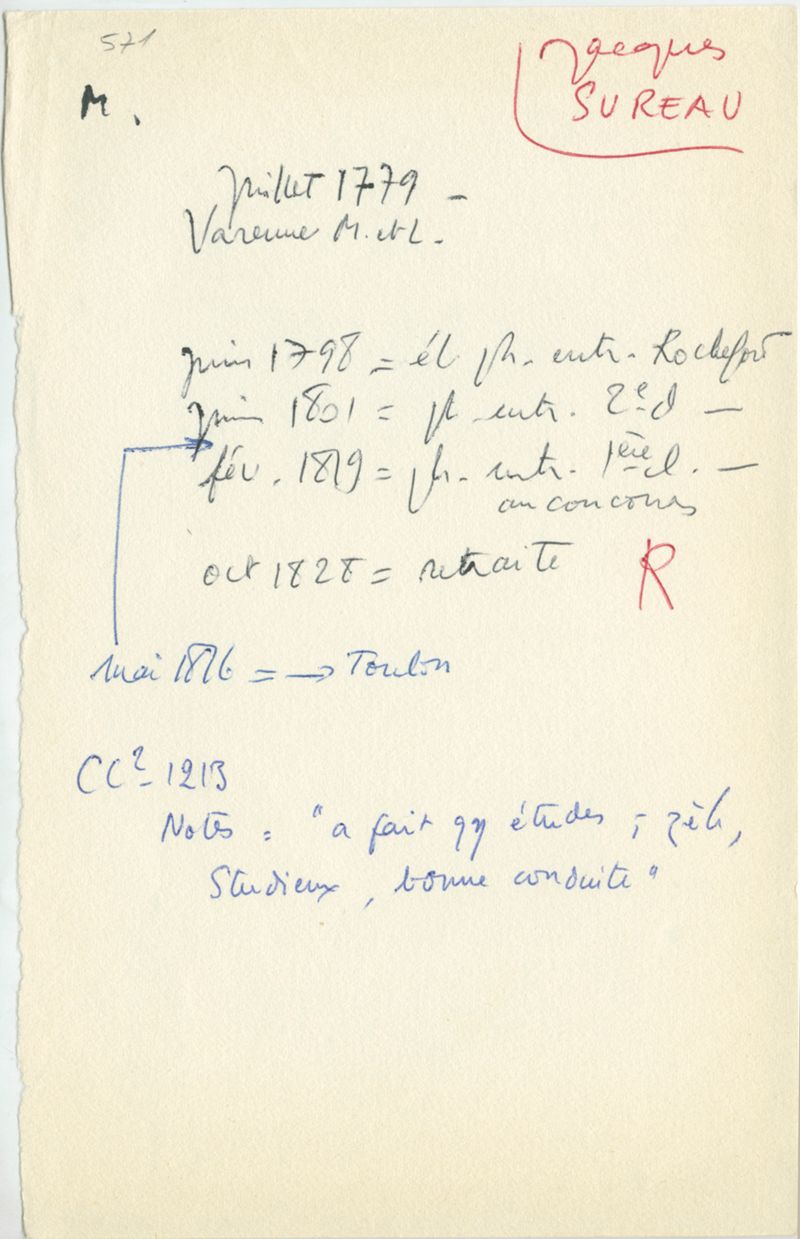 571
Jacques
SUREAU
M.
Juillet 1779 -
Varenne M. et L.
juin 1798 = él. ph. entr. Rochefort
juin 1801 = ph. entr. 2e cl -
fév. 1819 = ph. entr. 1ère cl. -
au concours
oct 1828 = retraite R
mai 1816 = → Toulon
CC2 - 1213
Notes : "a fait qq études ; zèle,
Studieux, bonne conduite"